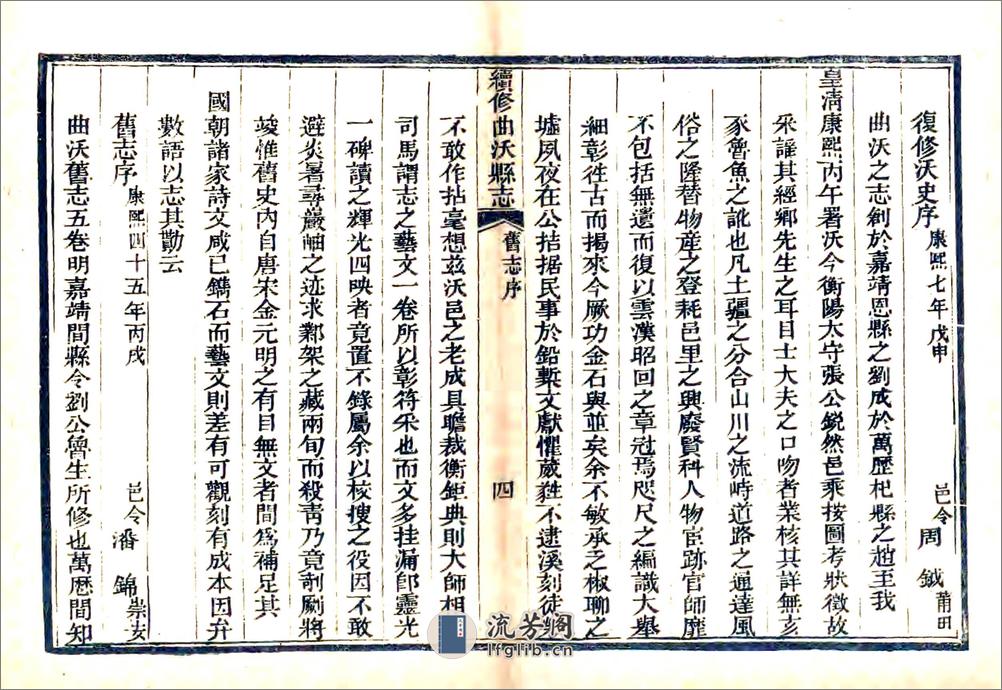 復修沃史序 康熙七年戊申 邑令 周鉞 莆田
曲沃之志創於嘉靖恩縣之劉成於萬歷杞縣之趙至我
皇淸康熙丙午署沃今衡陽太守張公銳然邑乘按圖考狀徵故
釆謡其經鄉先生之耳目士大夫之口吻者業核其詳無亥
豕魯魚之訛也凡土疆之分合山川之流峙道路之通達風
俗之隆替物產之登耗邑里之興廢賢科人物宦跡官師靡
不包括無遺而復以雲漢昭回之章冠焉咫尺之編識大舉
細彰徃古而揭來今厥功金石與並矣余不敏承之椒聊之
墟夙夜在公拮据民事於鉛槧文獻懼葳蕤不逮溪刻徒
續修曲沃縣志 舊志序 四
不敢作拈毫想兹沃邑之老成具瞻裁衡鉅典則大師相
司馬謂志之藝文一卷所以彰符采也而文多挂漏卽靈光
一碑讀之輝光四映者竟置不錄屬余以梭搜之役因不敢
避炎暑尋巖岫之迹求鄴架之藏兩旬而殺靑乃竟剞劂將
竣惟舊史內自唐宋金元明之有目無文者間爲補足其
國朝諸家詩文咸已鐫石而藝文則差有可觀刻有成本因弁
數語以志其勤云
舊志序 康熙四十五年丙戌 邑令 潘錦 崇安
曲沃舊志五卷明嘉靖間縣令劉公魯生所修也萬歷間知
流芳閣
lfglib.cn